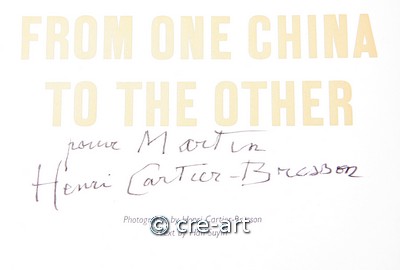 FROM ONE CHINA
TO THE OTHER
pour Martin
Henri Cartier-Bresson
Photographs by Henri Cartier-Bresson
Text by Han Suyin
© cre-art